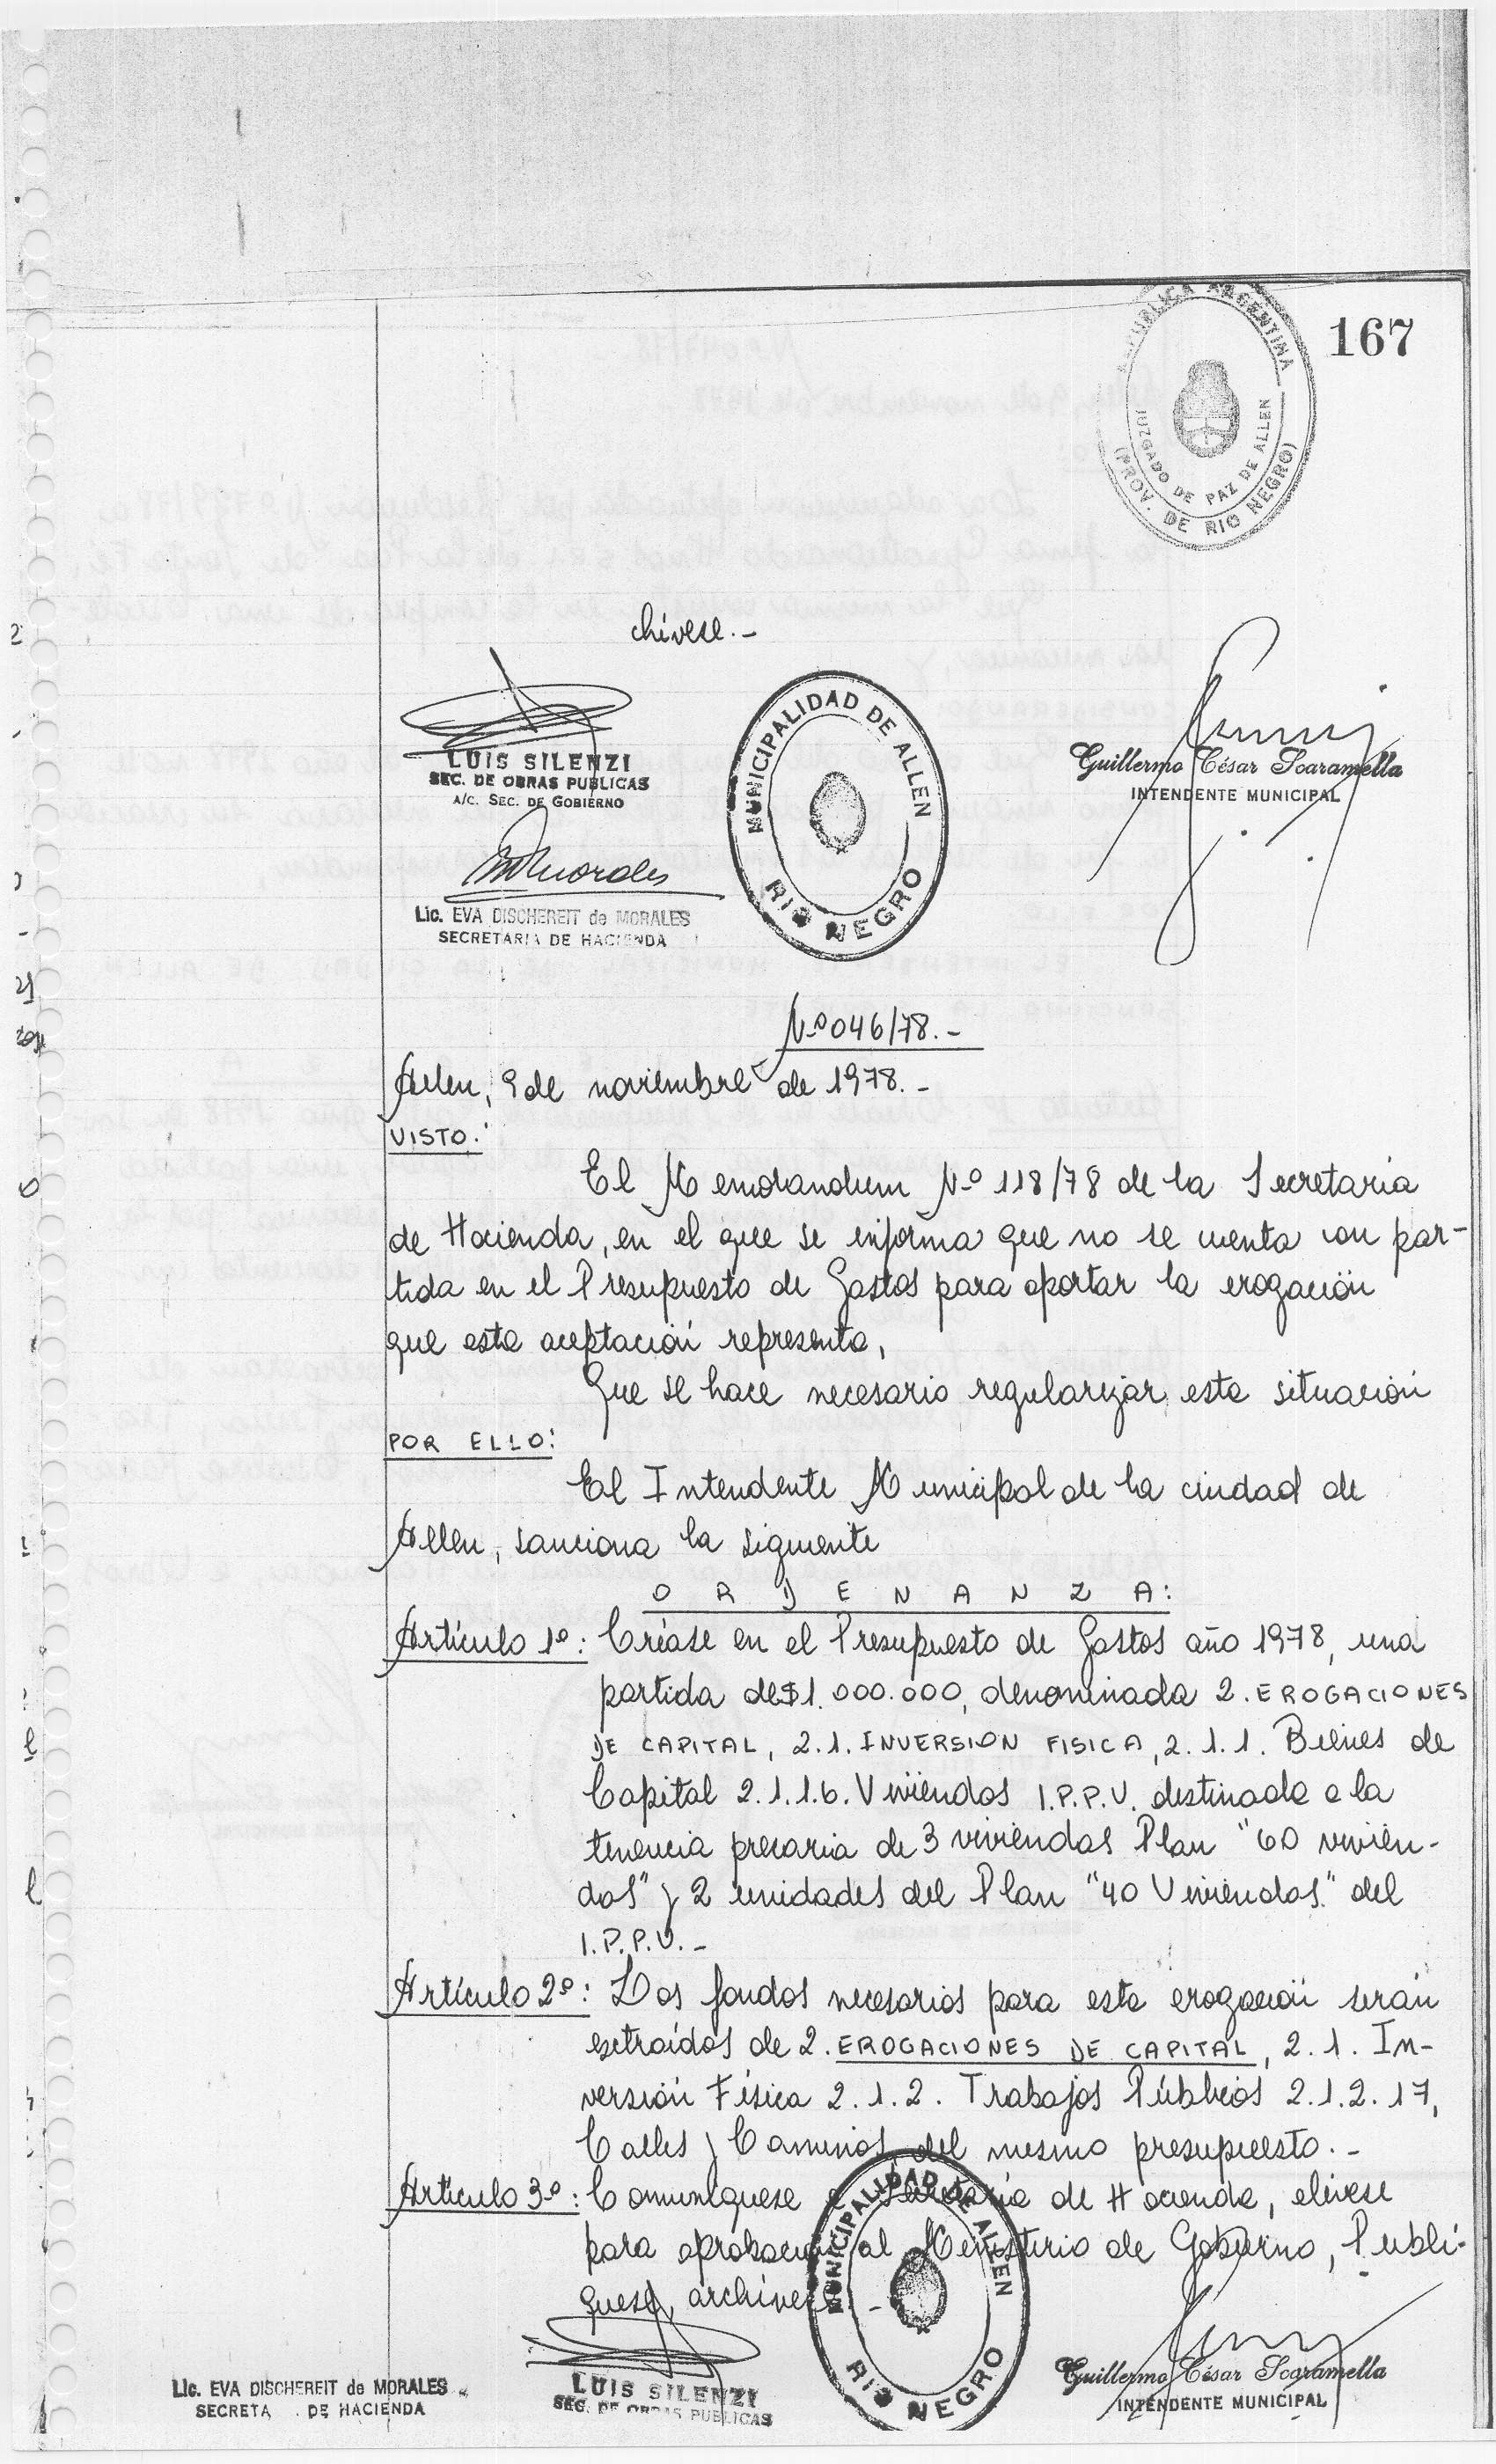 REPUBLICA ARGENTINA
JUZGADO DE PAZ DE ALLEN
(PROV. DE RIO NEGRO)
167
chívese.-
LUIS SILENZI
SEC. DE OBRAS PUBLICAS
A/C. SEC. DE GOBIERNO
MUNICIPALIDAD DE ALLEN
RIO NEGRO
Guillermo César Scaramella
INTENDENTE MUNICIPAL
Lic. EVA DISCHEREIT de MORALES
SECRETARIA DE HACIENDA
Nº 046/78.-
Allen, 9 de noviembre de 1978.-
VISTO:
El Memorandum Nº 118/78 de la Secretaria
de Hacienda, en el que se informa que no se cuenta con par-
tida en el Presupuesto de Gastos para aportar la erogación
que esta aceptación representa,
Que se hace necesario regularizar esta situación
POR ELLO:
El Intendente Municipal de la ciudad de
Allen, sanciona la siguiente
O R D E N A N Z A:
Artículo 1º: Créase en el Presupuesto de Gastos año 1978, una
partida de $1.000.000, denominada 2. EROGACIONES
DE CAPITAL, 2.1. INVERSION FISICA, 2.1.1. Bienes de
Capital 2.1.1.6. Viviendas I.P.P.V. destinada a la
tenencia precaria de 3 viviendas Plan "60 vivien-
das" y 2 unidades del Plan "40 Viviendas" del
I.P.P.V.-
Artículo 2º: Los fondos necesarios para esta erogación serán
extraídos de 2. EROGACIONES DE CAPITAL, 2.1. In-
versión Física 2.1.2. Trabajos Públicos 2.1.2.17,
Calles y Caminos, del mesmo presupuesto.-
Artículo 3º: Comuníquese a Secretaría de Hacienda, elévese
para aprobación al Ministerio de Gobierno, Publí-
quese, archívese.-
MUNICIPALIDAD DE ALLEN
RIO NEGRO
Lic. EVA DISCHEREIT de MORALES
SECRETA DE HACIENDA
LUIS SILENZI
SEC. DE OBRAS PUBLICAS
Guillermo César Scaramella
INTENDENTE MUNICIPAL